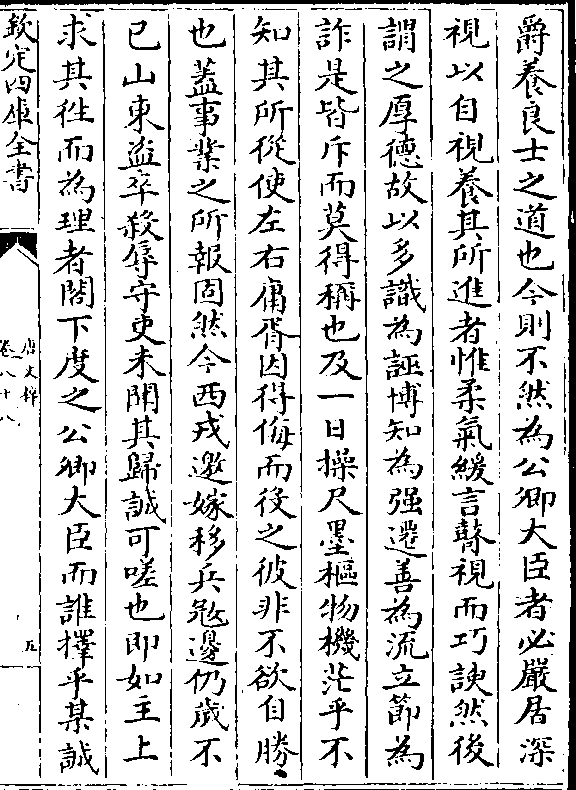 爵養良士之道也今則不然為公卿大臣者必嚴居深
視以自視養其所進者惟柔氣緩言瞽視而巧諛然後
謂之厚德故以多識為誣博知為强遷善為流立節為
詐是皆斥而莫得稱也及一日操尺墨樞物機茫乎不
知其所從使左右庸胥因得侮而役之彼非不欲自勝
也葢事業之所報固然今西戎邀嫁移兵㓂邊仍歲不
已山東盗卒殺辱守吏未聞其歸誠可嗟也即如主上
求其徃而為理者閤下度之公卿大臣而誰擇乎某誠
欽定四庫全書
唐文粹
卷八十八
五